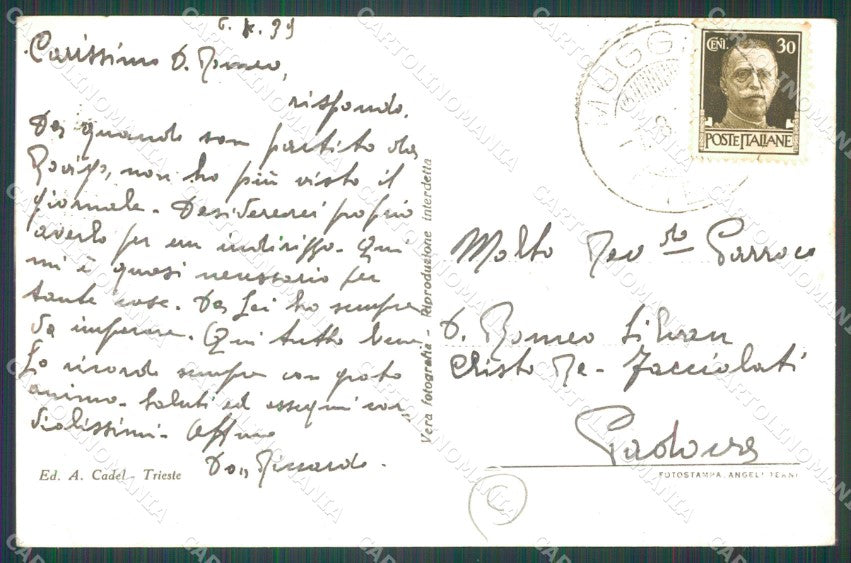 6. X. 39
Carissimo D. Romeo,
rispondo.
Da quando son partito da
Rovigo, non ho più visto il
giornale. Desidererei proprio
averlo per un indirizzo. Qui
mi è quasi necessario per
tante cose. Da Lei ho sempre
da imparare. Qui tutto bene.
La ricordo sempre con grato
animo. Saluti ed ossequi cor-
dialissimi. Affmo
Don Riccardo.
Ed. A. Cadel - Trieste
Vera fotografia - Riproduzione interdetta
MUGG
CENT. 30
POSTE ITALIANE
Molto Rev do Parroco
D. Romeo
Cristo Re - Facciolati
Padova
FOTOSTAMPA ANGELI TERNI
CARTOLINOMANIA